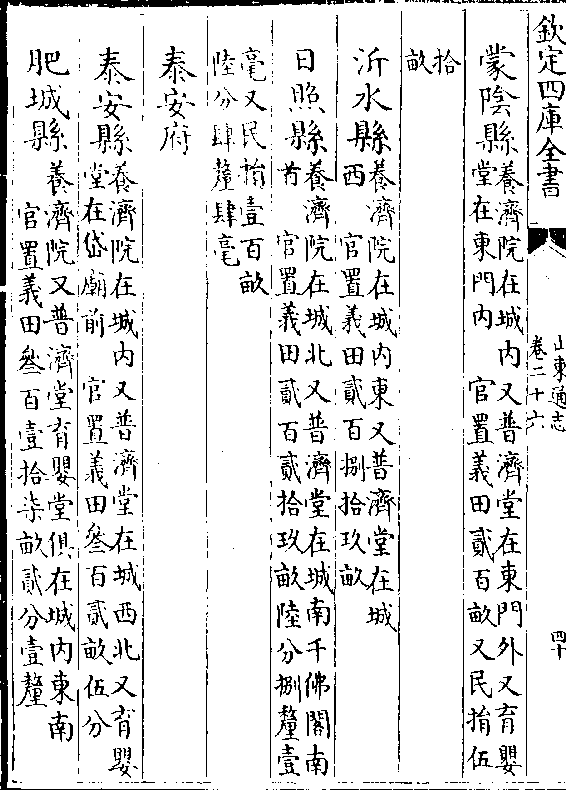 欽定四庫全書
山東通志
卷二十六
四十
蒙陰縣養濟院在城内又普濟堂在東門外又育嬰
堂在東門内 官置義田貳百畝又民捐伍
拾
畝
沂水縣養濟院在城内東又普濟堂在城
西 官置義田貳百捌拾玖畝
日照縣養濟院在城北又普濟堂在城南千佛閣南
首 官置義田貳百貳拾玖畝陸分捌釐壹
毫又民捐壹百畝
陸分肆釐肆毫
泰安府
泰安縣養濟院在城内又普濟堂在城西北又育嬰
堂在岱廟前 官置義田叄百貳畝伍分
肥城縣養濟院又普濟堂育嬰堂俱在城内東南
官置義田叄百壹拾柒畝貳分壹釐